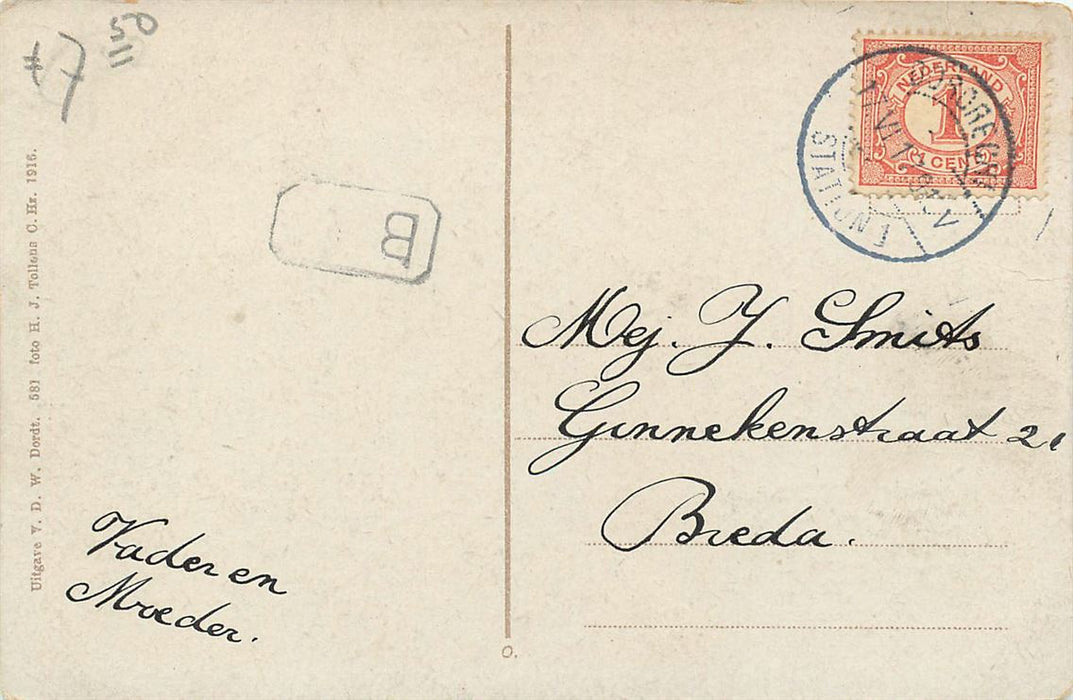 7 50
Uitgave V. D. W. Dordt. 581 foto H. J. Tollens C. Hz. 1916.
B
NEDERLAND
1
1 CENT
DORDRECHT
STATION
Mej. J. Smits
Ginnekenstraat 21
Breda.
Vader en
Moeder.
O.